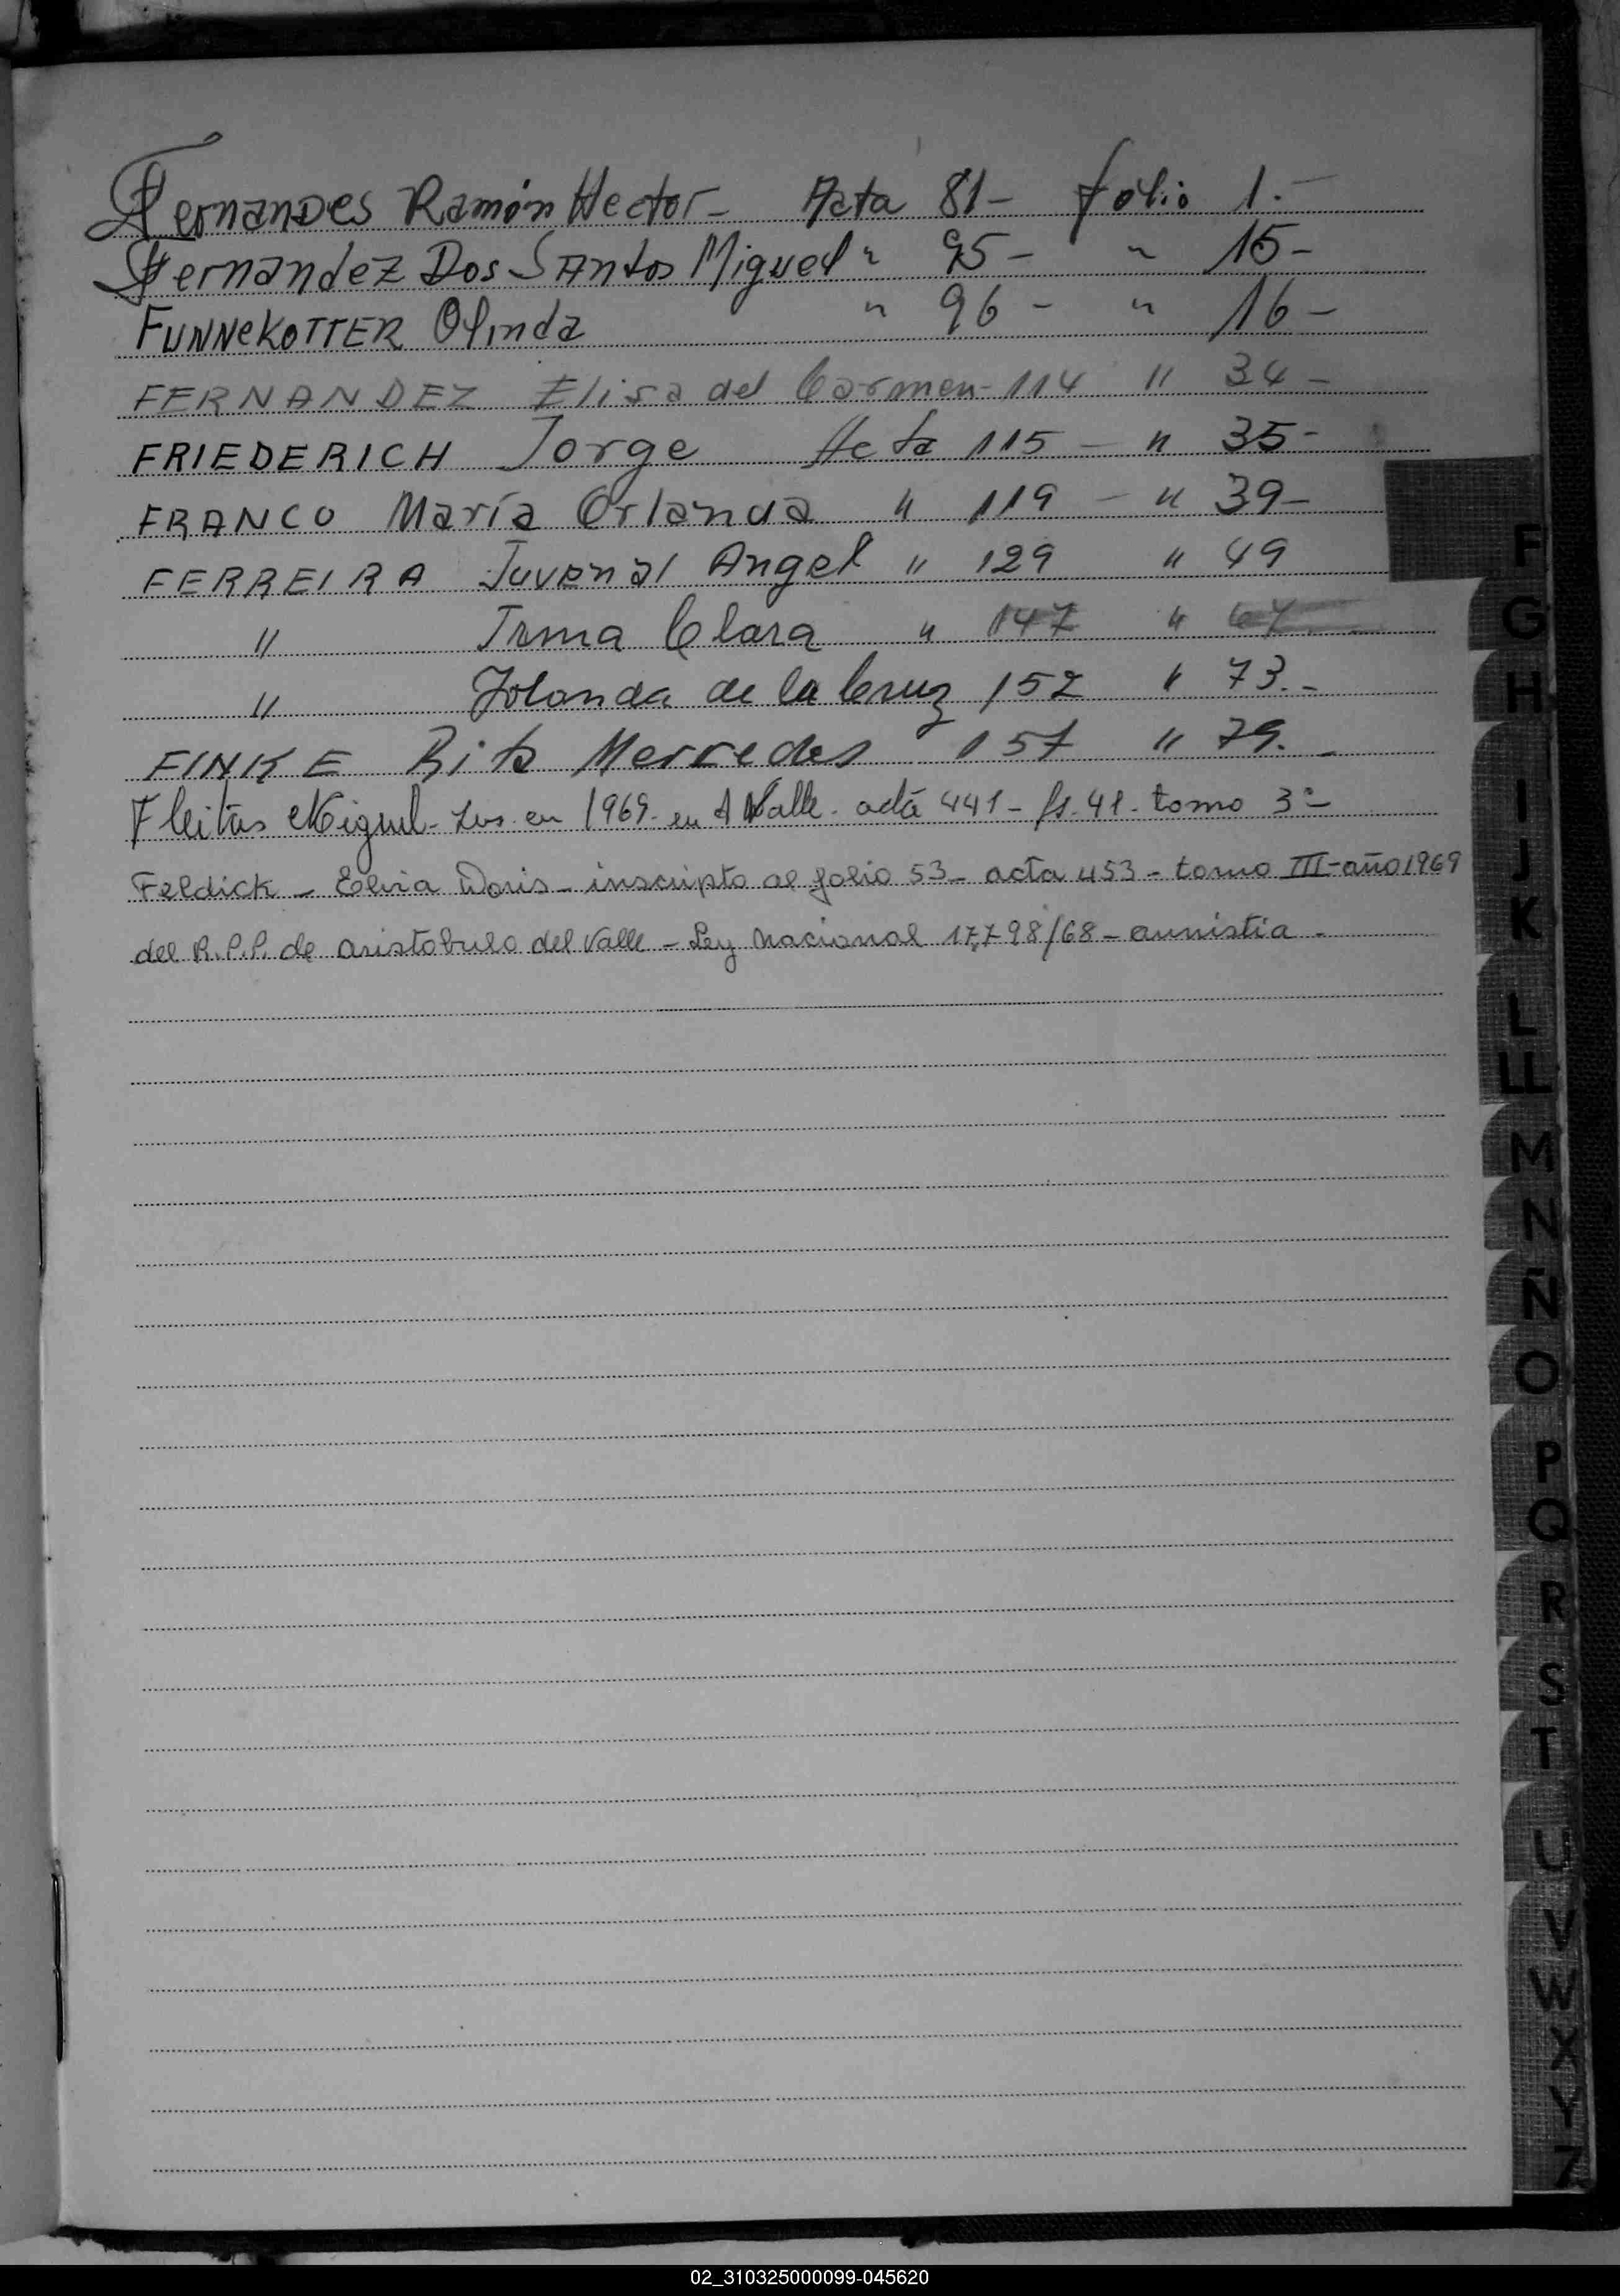 Fernandes Ramón Hector - Acta 81 - folio 1.-
Fernandez Dos Santos Miguel " 95 - " 15 -
FUNNEKOTTER Olinda " 96 - " 16 -
FERNANDEZ Elisa del Carmen - 114 " 34 -
FRIEDERICH Jorge Acta 115 - " 35 -
FRANCO María Orlanda " 119 - " 39 -
FERREIRA Juvenal Angel " 129 " 49
" Irma Clara " 147 " 67
" Jolanda de la Cruz 152 " 73.-
FINKE Rita Mercedes " 157 " 79.-
Fleitas Miguel - Ins. en 1969 - en A Valle - acta 441 - fs. 41 - tomo 3º -
Feldick - Elvia Doris - inscripto al folio 53 - acta 453 - tomo III - año 1969
del R.P.P. de aristobulo del Valle - Ley Nacional 17,798/68 - amnistia -
F
G
H
I
J
K
L
LL
M
N
Ñ
O
P
Q
R
S
T
U
V
W
X
Y
Z
02_310325000099-045620